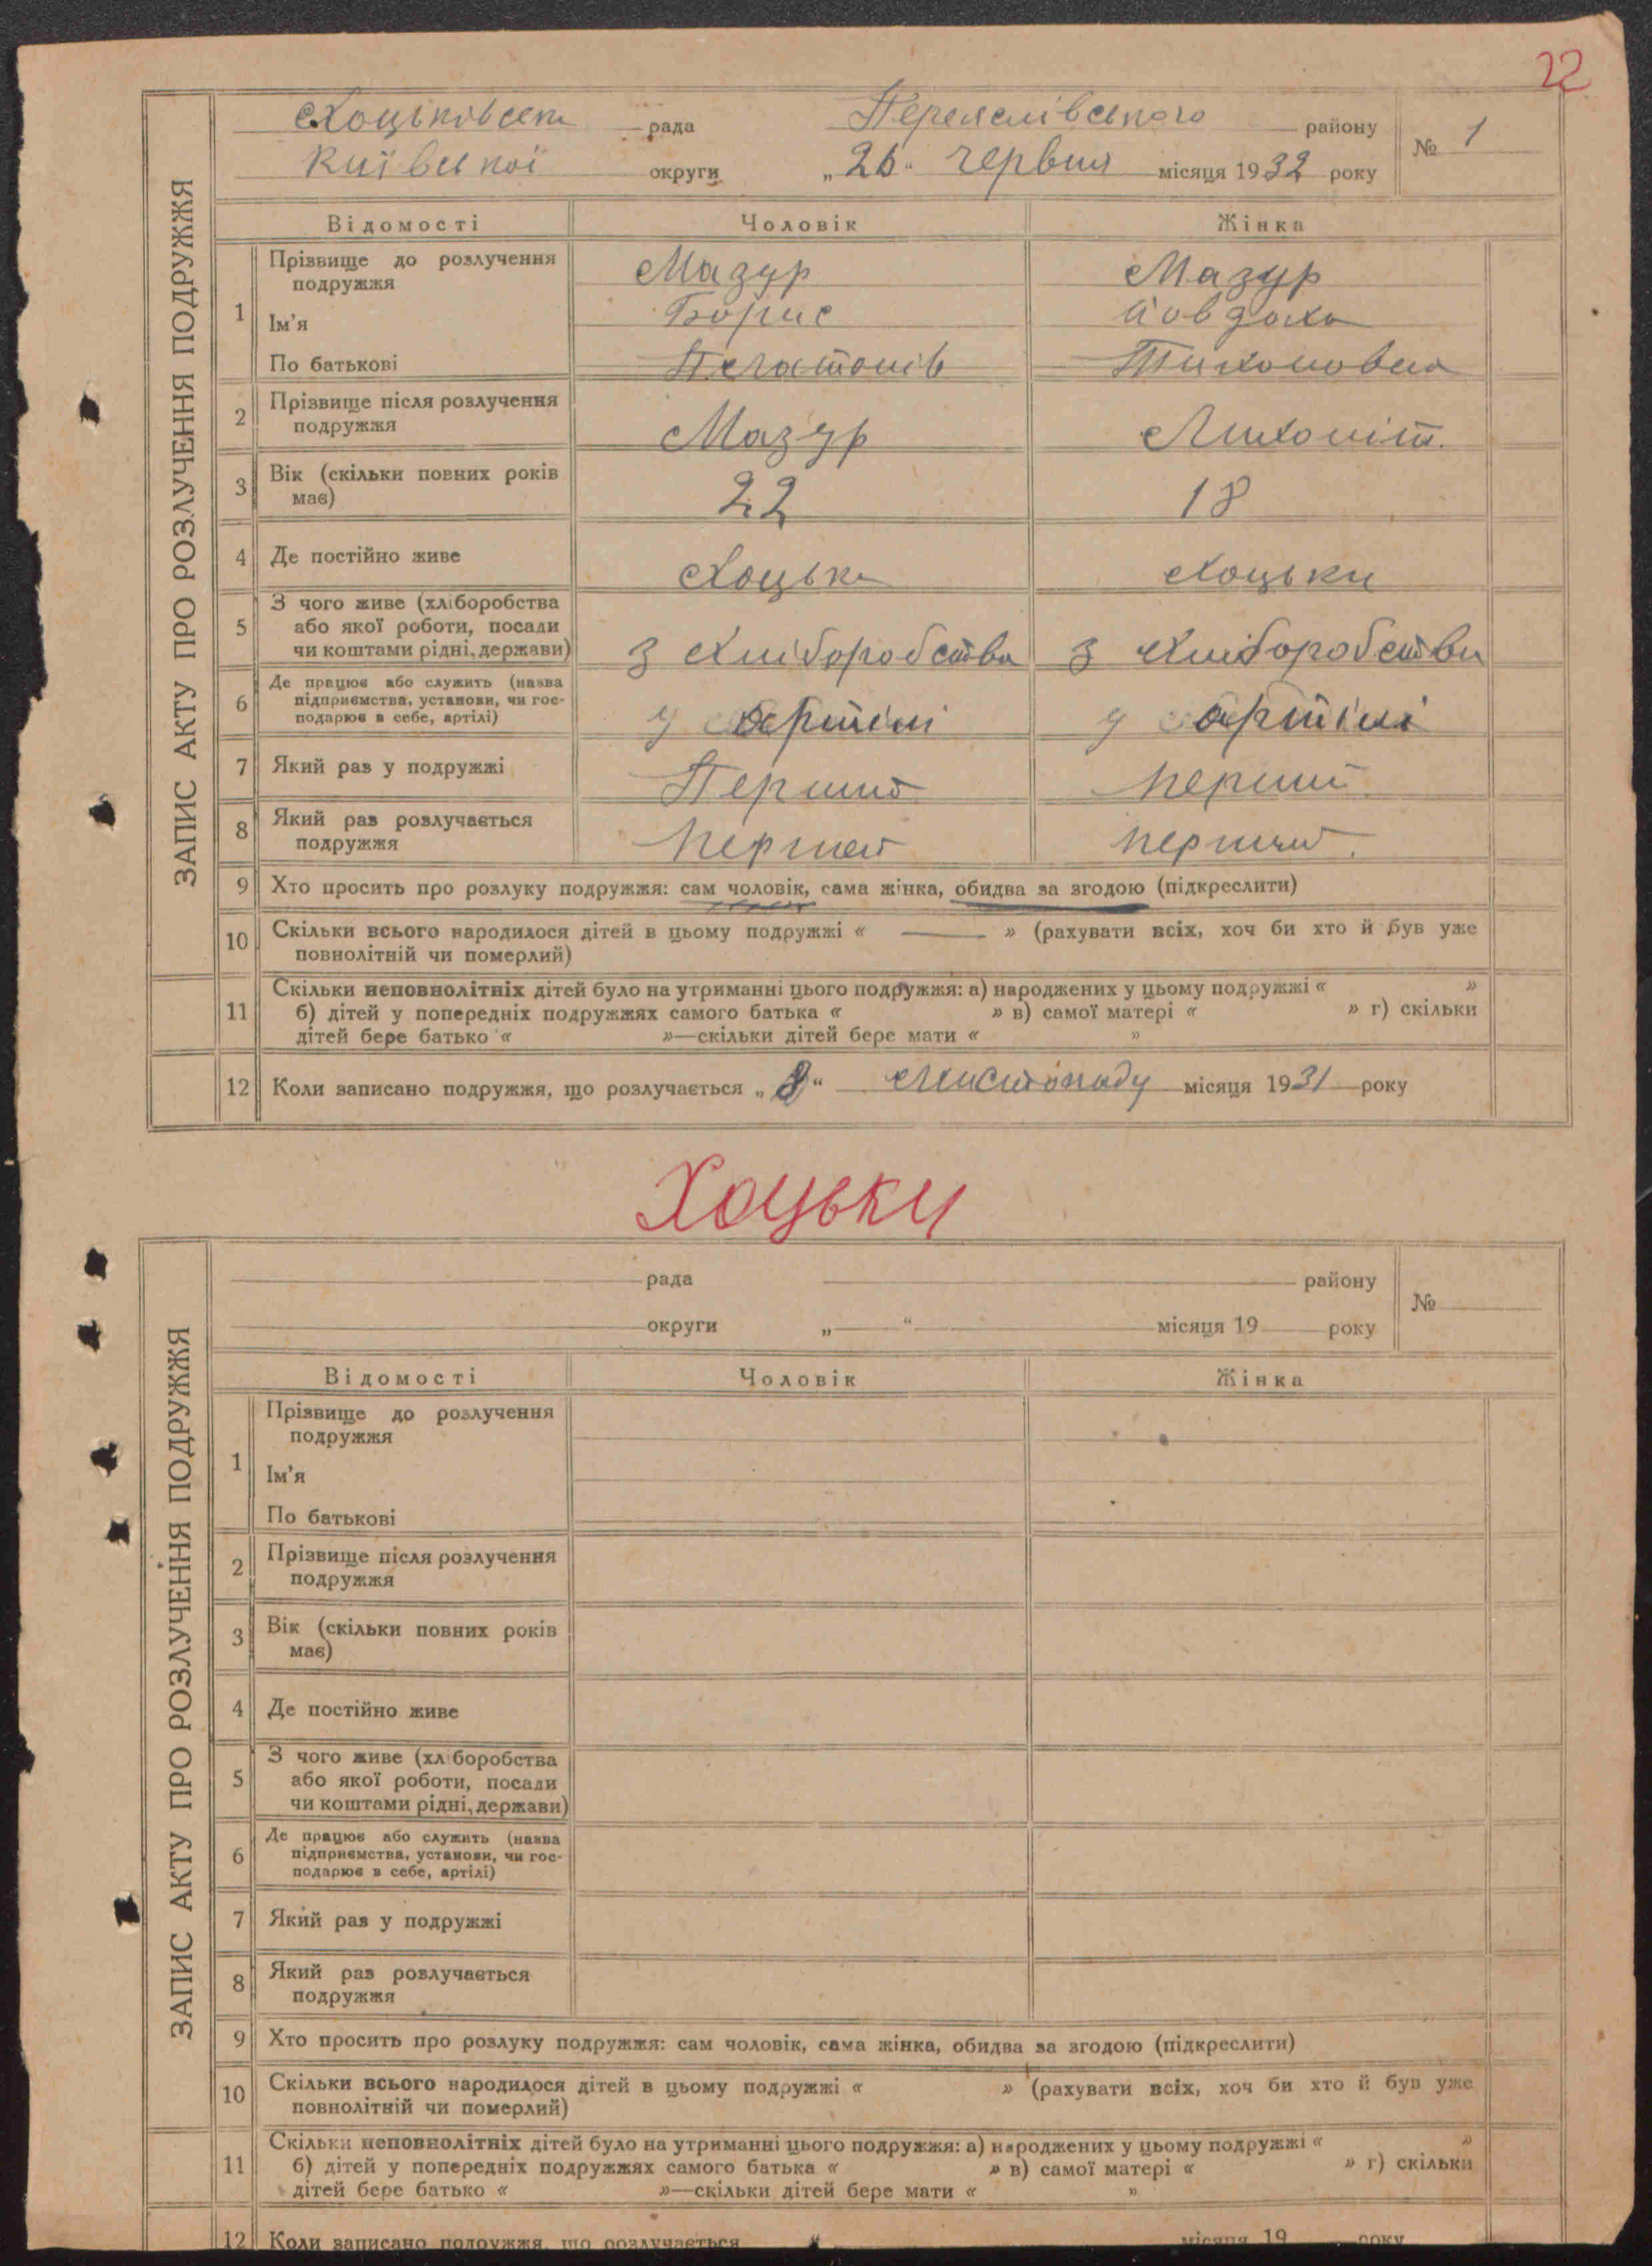 22
Хоцьківська рада Переяслівського району № 1
Київської округи „26“ червня місяця 1932 року
ЗАПИС АКТУ ПРО РОЗЛУЧЕННЯ ПОДРУЖЖЯ
Відомості Чоловік Жінка
1 Прізвище до розлучення подружжя Мазур Мазур
Ім'я Борис Йовдоха
По батькові Тихоновна
2 Прізвище після розлучення
подружжя Мазур
3 Вік (скільки повних років
має) 22 18
4 Де постійно живе Хоцьки Хоцьки
5 З чого живе (хліборобства
або якої роботи, посади
чи коштами рідні, держави) з хліборобства з хліборобства
6 Де працює або служить (назва
підприємства, установи, чи гос-
подарює в себе, артілі) у артілі у артілі
7 Який раз у подружжі Перший перший
8 Який раз розлучається
подружжя перший перший.
9 Хто просить про розлуку подружжя: сам чоловік, сама жінка, обидва за згодою (підкреслити)
10 Скільки всього народилося дітей в цьому подружжі « — » (рахувати всіх, хоч би хто й був уже
повнолітній чи померлий)
11 Скільки неповнолітніх дітей було на утриманні цього подружжя: а) народжених у цьому подружжі « »
б) дітей у попередніх подружжях самого батька « » в) самої матері « » г) скільки
дітей бере батько « »—скільки дітей бере мати « »
12 Коли записано подружжя, що розлучається „8“ Листопаду місяця 1931 року
Хоцьки
рада району №
округи „ “ місяця 19 року
ЗАПИС АКТУ ПРО РОЗЛУЧЕННЯ ПОДРУЖЖЯ
Відомості Чоловік Жінка
1 Прізвище до розлучення
подружжя
Ім'я
По батькові
2 Прізвище після розлучення
подружжя
3 Вік (скільки повних років
має)
4 Де постійно живе
5 З чого живе (хліборобства
або якої роботи, посади
чи коштами рідні, держави)
6 Де працює або служить (назва
підприємства, установи, чи гос-
подарює в себе, артілі)
7 Який раз у подружжі
8 Який раз розлучається
подружжя
9 Хто просить про розлуку подружжя: сам чоловік, сама жінка, обидва за згодою (підкреслити)
10 Скільки всього народилося дітей в цьому подружжі « » (рахувати всіх, хоч би хто й був уже
повнолітній чи померлий)
11 Скільки неповнолітніх дітей було на утриманні цього подружжя: а) народжених у цьому подружжі « »
б) дітей у попередніх подружжях самого батька « » в) самої матері « » г) скільки
дітей бере батько « »—скільки дітей бере мати « »
12 Коли записано подружжя, що розлучається “ місяця 19 року